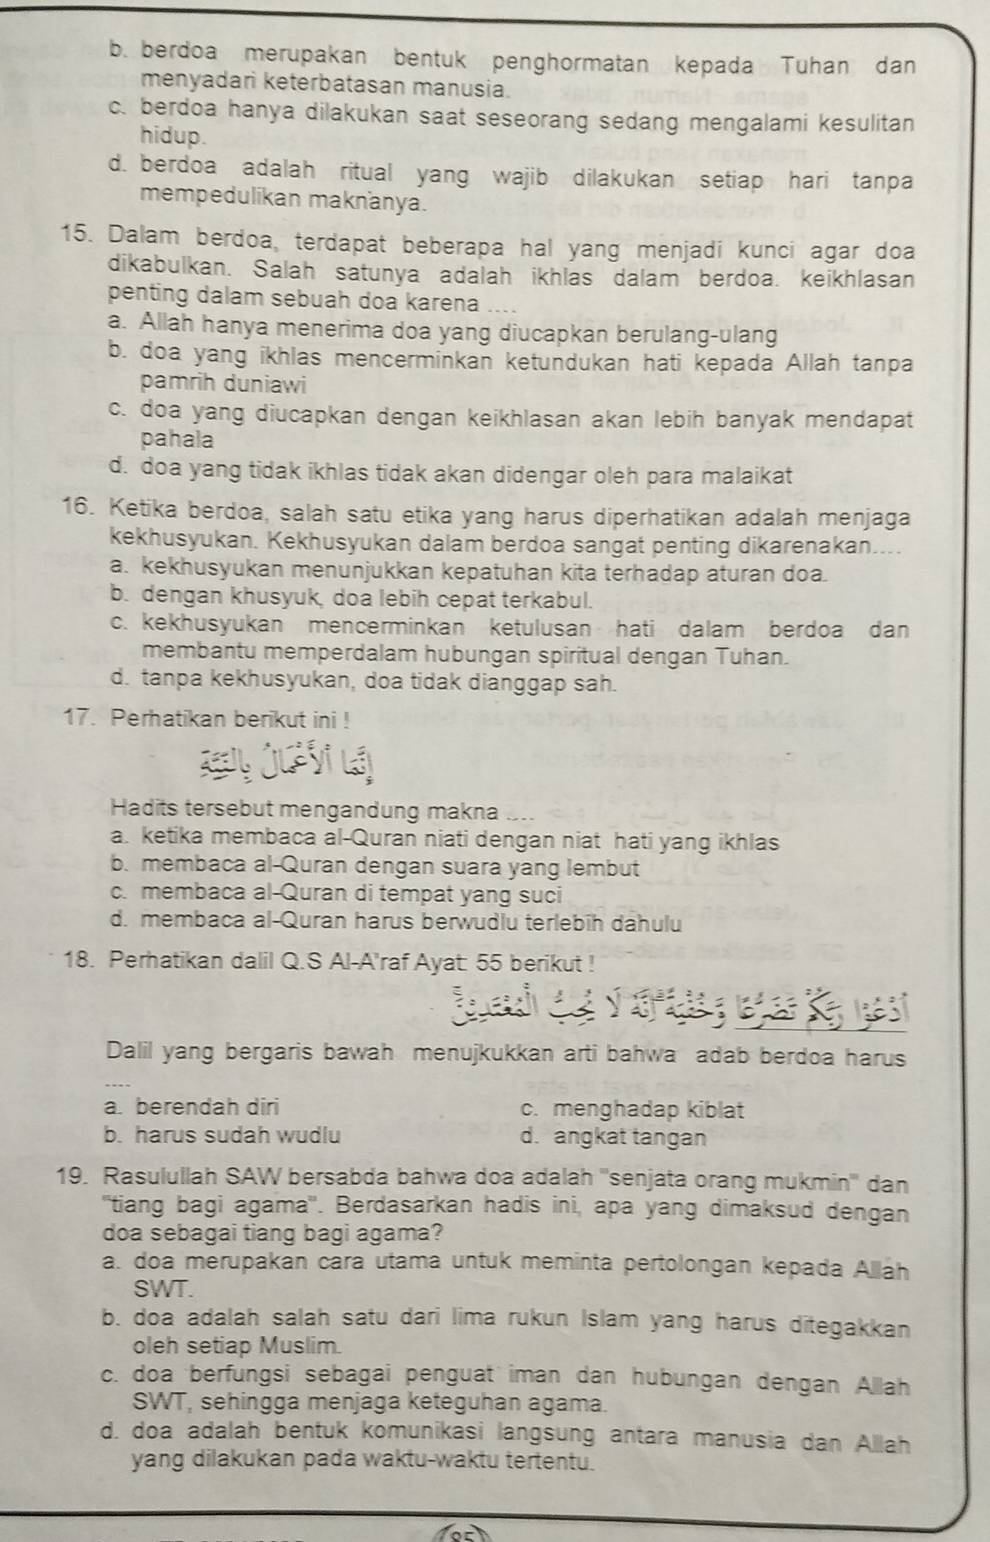 b. berdoa merupakan bentuk penghormatan kepada Tuhan dan
menyadari keterbatasan manusia.
c. berdoa hanya dilakukan saat seseorang sedang mengalami kesulitan
hidup.
d. berdoa adalah ritual yang wajib dilakukan setiap hari tanpa
mempedulikan maknanya.
15. Dalam berdoa, terdapat beberapa hal yang menjadi kunci agar doa
dikabulkan. Salah satunya adalah ikhlas dalam berdoa. keikhlasan
penting dalam sebuah doa karena ....
a. Allah hanya menerima doa yang diucapkan berulang-ulang
b. doa yang ikhlas mencerminkan ketundukan hati kepada Allah tanpa
pamrih duniawi
c. doa yang diucapkan dengan keikhlasan akan lebih banyak mendapat
pahala
d. doa yang tidak ikhlas tidak akan didengar oleh para malaikat
16. Ketika berdoa, salah satu etika yang harus diperhatikan adalah menjaga
kekhusyukan. Kekhusyukan dalam berdoa sangat penting dikarenakan....
a. kekhusyukan menunjukkan kepatuhan kita terhadap aturan doa.
b. dengan khusyuk, doa lebih cepat terkabul.
c. kekhusyukan mencerminkan ketulusan hati dalam berdoa dan
membantu memperdalam hubungan spiritual dengan Tuhan.
d. tanpa kekhusyukan, doa tidak dianggap sah.
17. Perhatikan berikut ini !
إِنَّمَا الْأَعْمَالُ بِالنِّيَّةِ
Hadits tersebut mengandung makna ....
a. ketika membaca al-Quran niati dengan niat hati yang ikhlas
b. membaca al-Quran dengan suara yang lembut
c. membaca al-Quran di tempat yang suci
d. membaca al-Quran harus berwudlu terlebih dahulu
18. Perhatikan dalil Q.S Al-A'raf Ayat: 55 berikut !
اُدْعُوْا رَبَّكُمْ تَضَرُّعًا وَّخُفْيَةً ۗاِنَّهٗ لَا يُحِبُّ الْمُعْتَدِيْنَۚ
Dalil yang bergaris bawah menujkukkan arti bahwa adab berdoa harus
....
a. berendah diri
c. menghadap kiblat
b. harus sudah wudlu
d. angkat tangan
19. Rasulullah SAW bersabda bahwa doa adalah "senjata orang mukmin" dan
"tiang bagi agama". Berdasarkan hadis ini, apa yang dimaksud dengan
doa sebagai tiang bagi agama?
a. doa merupakan cara utama untuk meminta pertolongan kepada Allah
SWT.
b. doa adalah salah satu dari lima rukun Islam yang harus ditegakkan
oleh setiap Muslim.
c. doa berfungsi sebagai penguat iman dan hubungan dengan Allah
SWT, sehingga menjaga keteguhan agama.
d. doa adalah bentuk komunikasi langsung antara manusia dan Allah
yang dilakukan pada waktu-waktu tertentu.